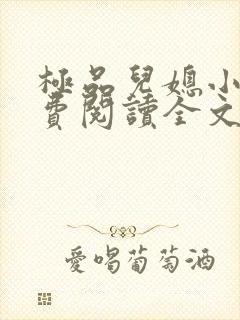 極品兒媳小
費閱讀全文
愛喝葡萄酒